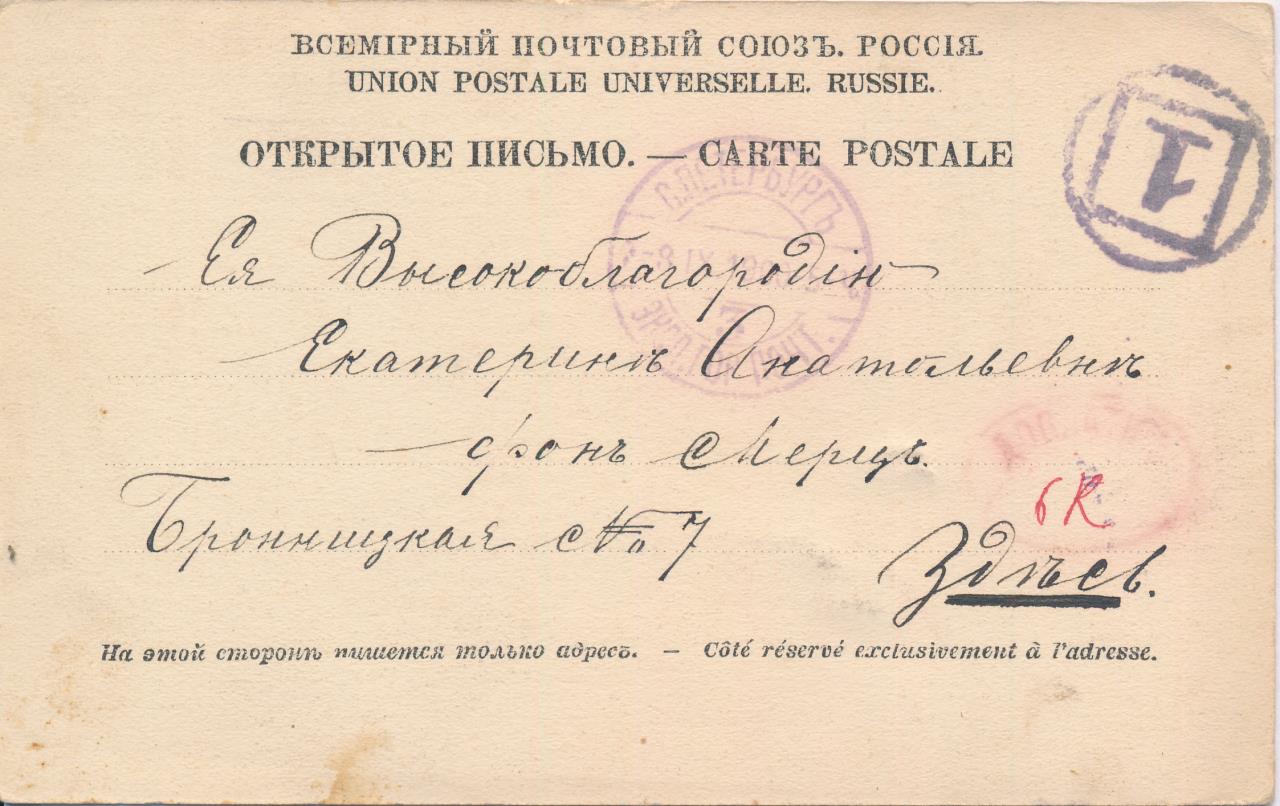 ВСЕМІРНЫЙ ПОЧТОВЫЙ СОЮЗЪ. РОССІЯ.
UNION POSTALE UNIVERSELLE. RUSSIE.
ОТКРЫТОЕ ПИСЬМО. — CARTE POSTALE
1
С.ПЕТЕРБУРГЪ
Ея Высокоблагородію
Екатеринѣ Анатольевнѣ
фонъ Мерцъ.
6 К
Бронницкая № 7
Здѣсь.
На этой сторонѣ пишется только адресъ. — Côté réservé exclusivement à l'adresse.